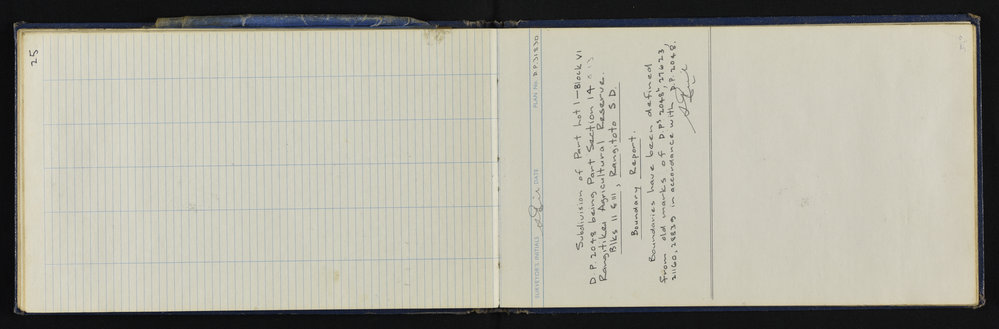 25
SURVEYOR'S INITIALS DATE PLAN No. D.P. 31830
Subdivision of Part Lot 1 - Block VI
D.P. 2048 being Part Section 14
Rangitikei Agricultural Reserve.
Blks II & III, Rangitoto S.D.
Boundary Report.
Boundaries have been defined
from old marks of D.Ps 2048, 27623,
21160, 28839 in accordance with D.P. 2048.